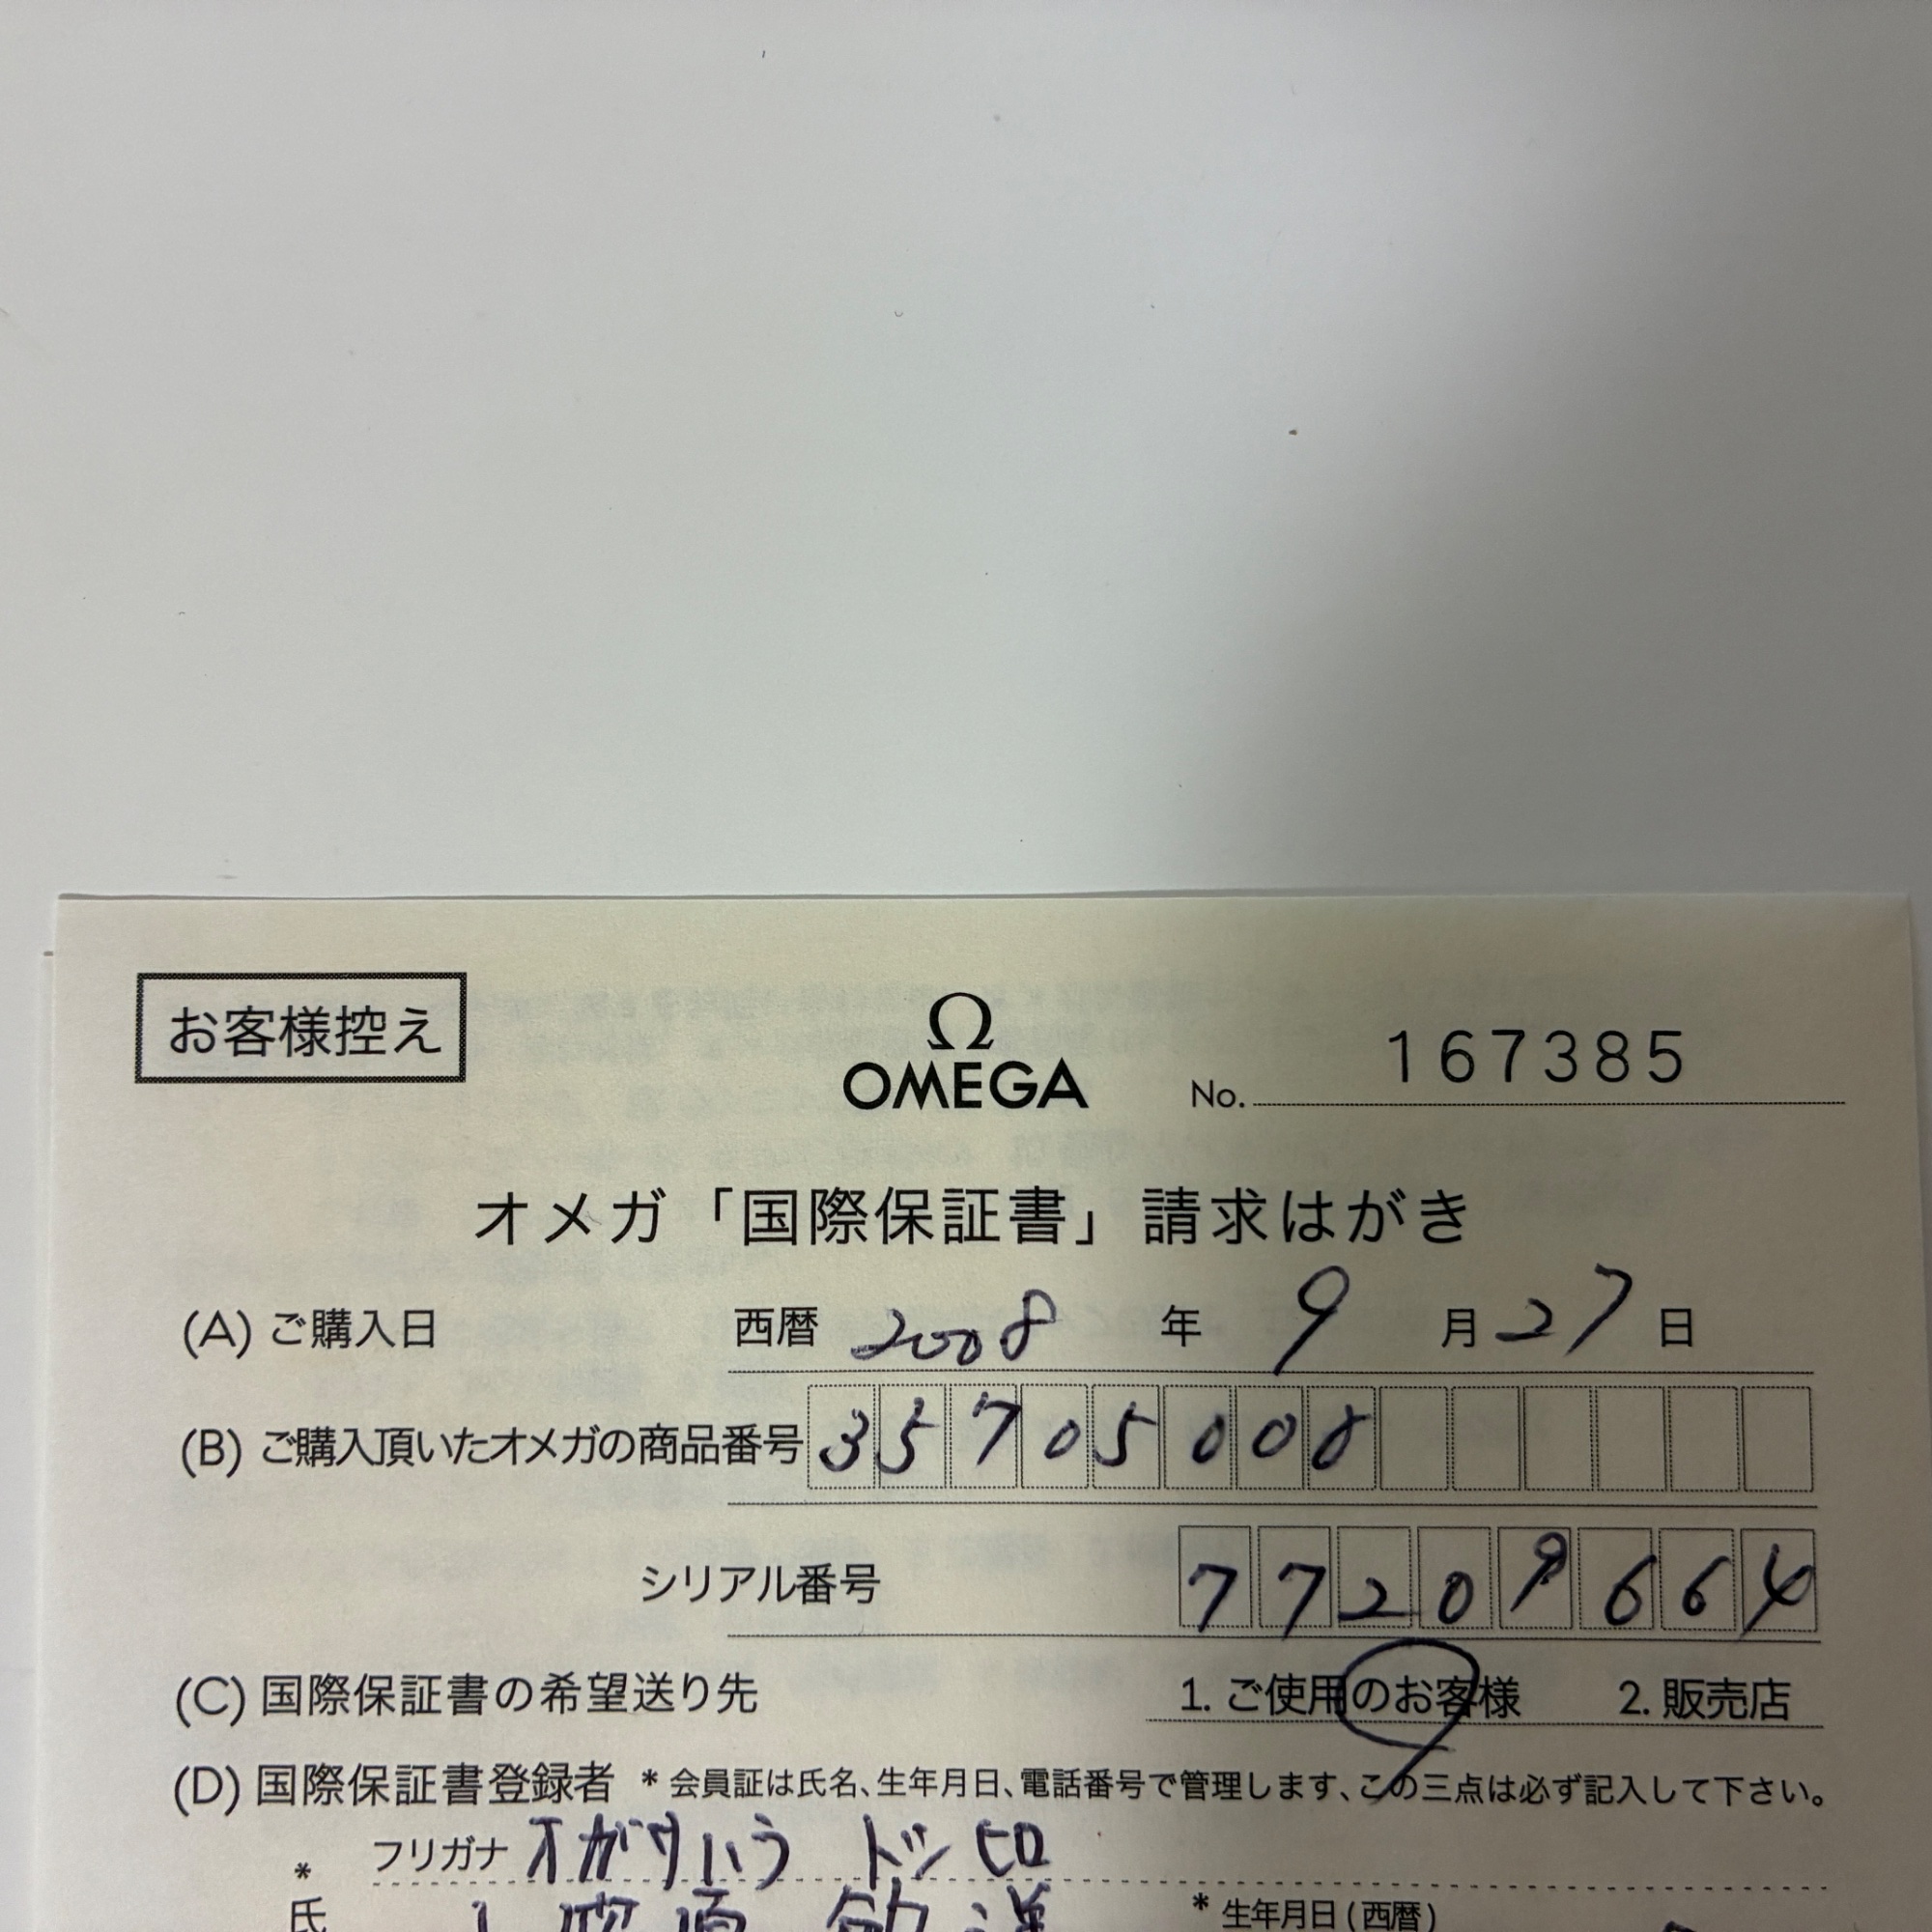 お客様控え
Ω
OMEGA
No. 167385
オメガ「国際保証書」請求はがき
(A) ご購入日 西暦 2008 年 9 月 27 日
(B) ご購入頂いたオメガの商品番号 35705008
シリアル番号 77209664
(C) 国際保証書の希望送り先 1. ご使用のお客様 2. 販売店
(D) 国際保証書登録者 *会員証は氏名、生年月日、電話番号で管理します、この三点は必ず記入して下さい。
フリガナ オガサハラ トシヒロ
* 氏
* 生年月日 (西暦)